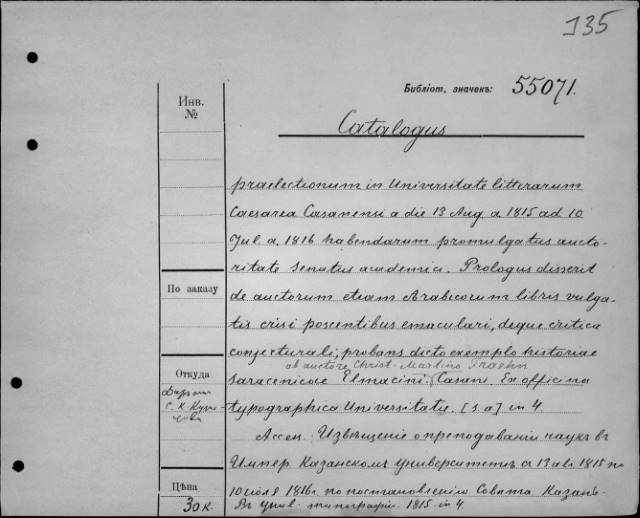 135
Библіот. значекъ: 55071.
Инв. №
Catalogus
praelectionum in Universitate litterarum
Caesarea Casanensi a die 13 Aug. a. 1815 ad 10
Jul. a. 1816 habendarum promulgatus aucto-
ritate Senatus academici. Prologus disserit
По заказу
de auctorum etiam Arabicorum libris vulga-
tis crisi poscentibus emaculari, deque critica
conjecturali, probans dicto exemplo historiae
ab auctore Christ. Martino Fraehn
Откуда
saracenicae Elmacini. Casani. Ex officina
С. К. Куз-
typographica Universitatis. [s. a] in 4.
Ассеп. Извѣщеніе о преподаваніи наукъ въ
Импер. Казанскомъ университетѣ съ 13 ав. 1815 по
Цѣна
10 іюля 1816 г. по постановленію Совѣта. Казань.
30 к.
Въ унив. типографіи. 1815. in 4.